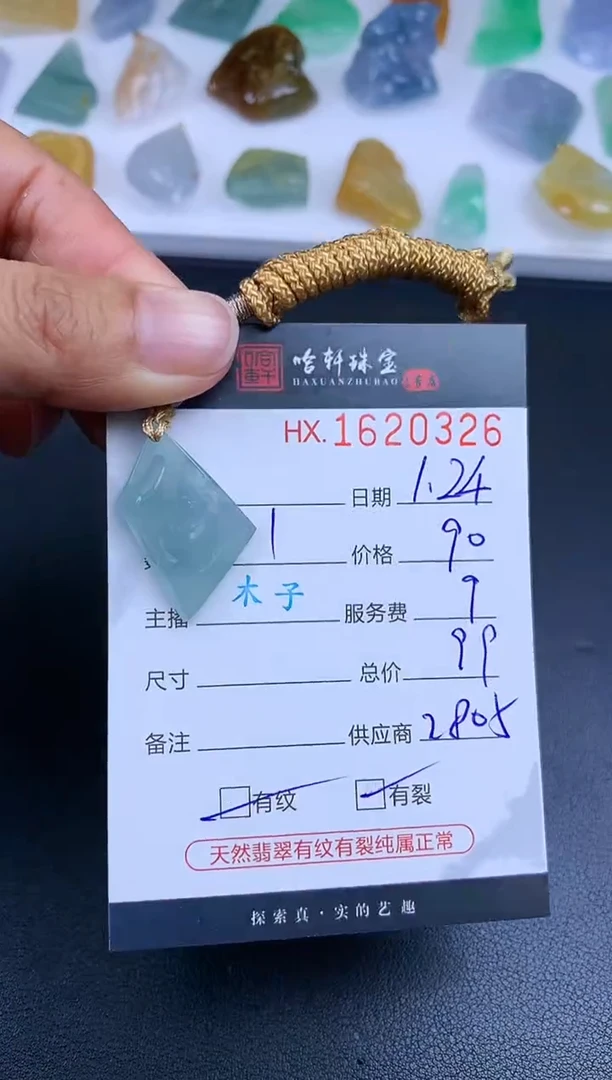 哈轩珠宝
HAXUANZHUBAO
HX.1620326
日期 1.24
1 价格 90
主播 木子 服务费 9
尺寸 总价 99
备注 供应商 2805
有纹 有裂
天然翡翠有纹有裂纯属正常
探索真·实的艺趣